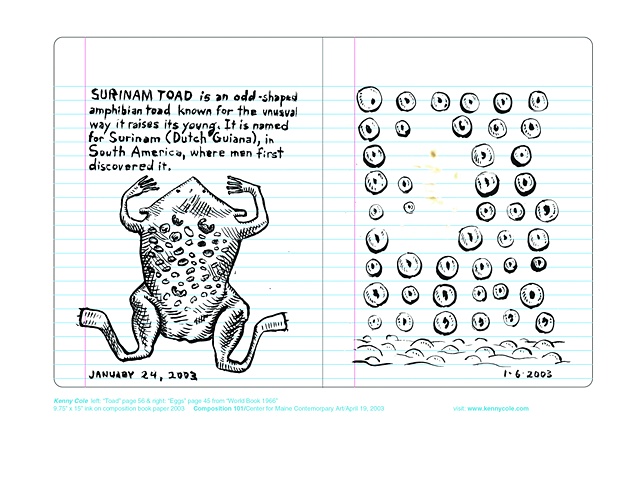 SURINAM TOAD is an odd-shaped
amphibian toad known for the unusual
way it raises its young. It is named
for Surinam (Dutch Guiana), in
South America, where men first
discovered it.
JANUARY 24, 2003
1·6·2003
Kenny Cole left: "Toad" page 56 & right: "Eggs" page 45 from "World Book 1966"
9.75" x 15" ink on composition book paper 2003 Composition 181/Center for Maine Contemporary Art/April 19, 2003 visit: www.kennycole.com